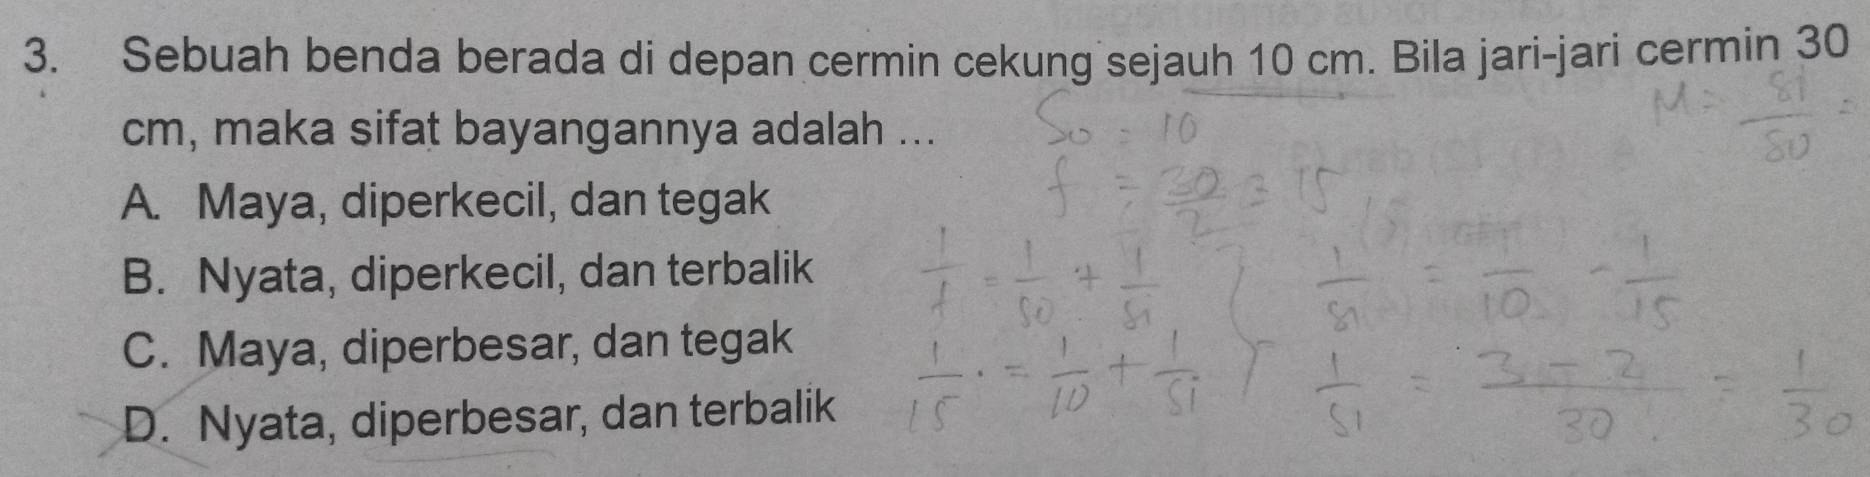 3. Sebuah benda berada di depan cermin cekung sejauh 10 cm. Bila jari-jari cermin 30
cm, maka sifat bayangannya adalah ...
A. Maya, diperkecil, dan tegak
B. Nyata, diperkecil, dan terbalik
C. Maya, diperbesar, dan tegak
D. Nyata, diperbesar, dan terbalik
M = si/so =
So = 10
f = 30/2 = 15
1/f = 1/so + 1/si
1/15 = 1/10 + 1/si
1/si = 1/10 - 1/15
1/si = 3 - 2/30 = 1/30